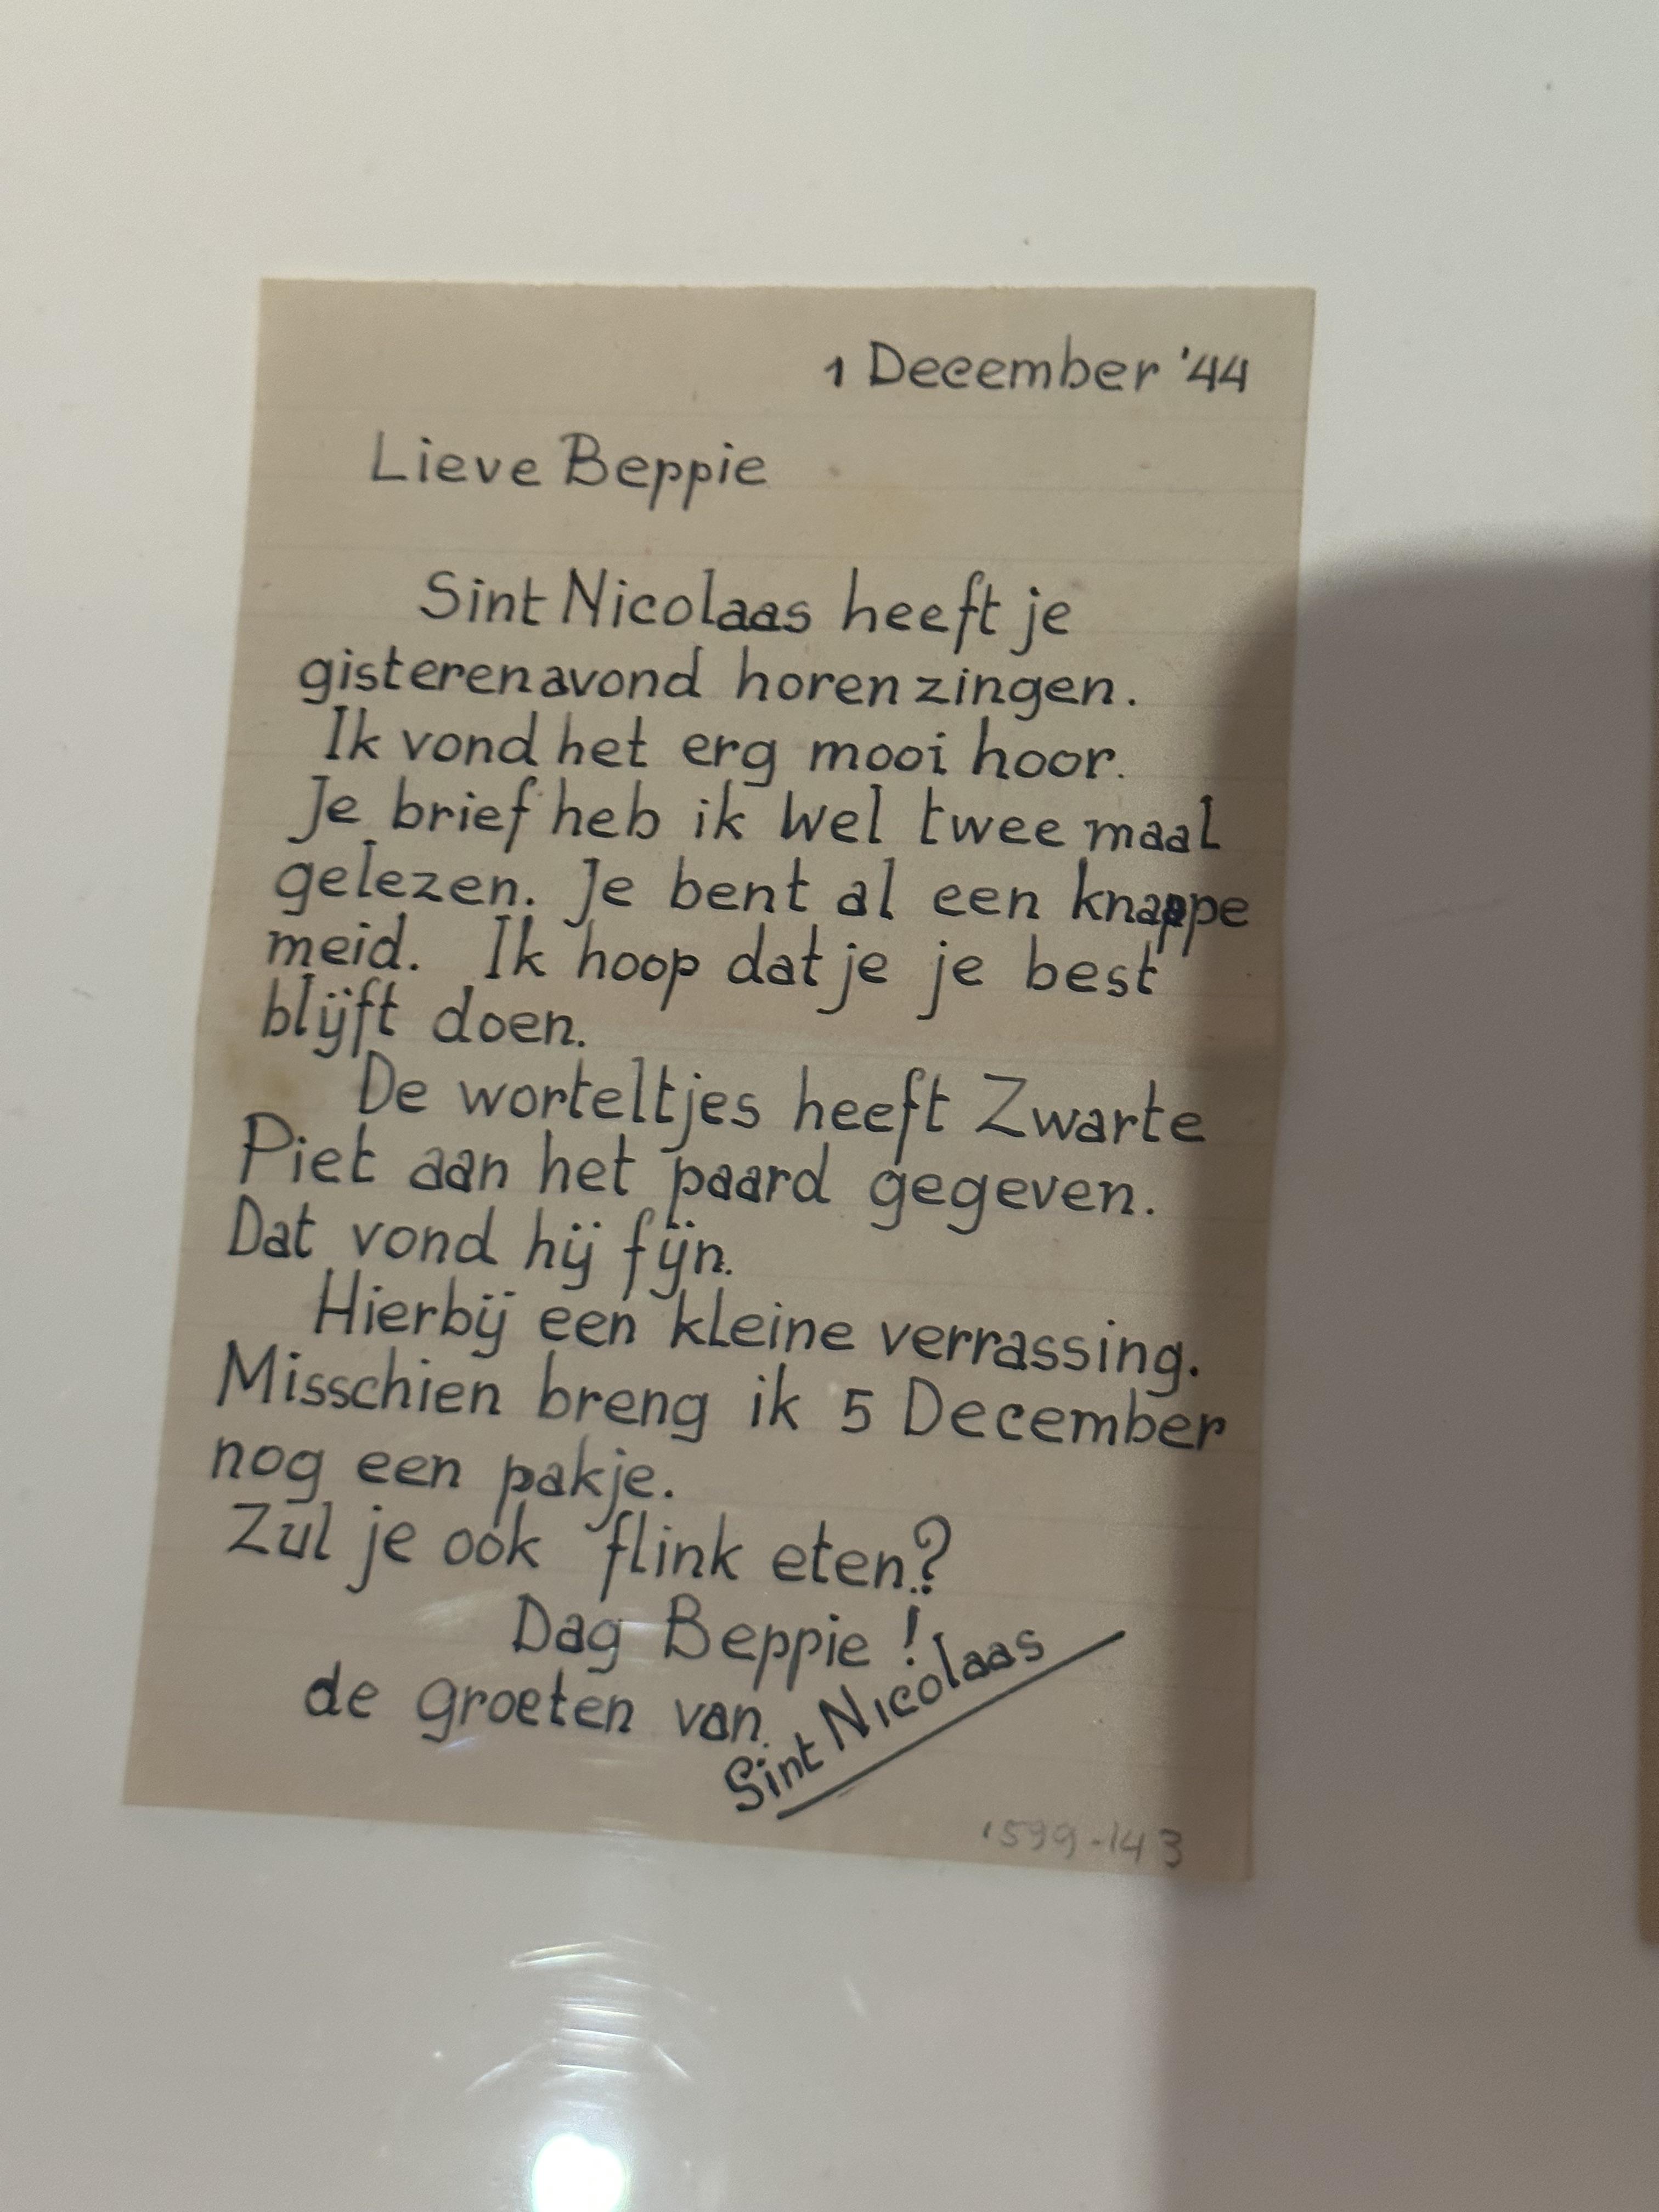 1 December '44
Lieve Beppie
Sint Nicolaas heeft je
gisterenavond horen zingen.
Ik vond het erg mooi hoor.
Je brief heb ik wel twee maal
gelezen. Je bent al een knappe
meid. Ik hoop dat je je best
blijft doen.
De worteltjes heeft Zwarte
Piet aan het paard gegeven.
Dat vond hij fijn.
Hierbij een kleine verrassing.
Misschien breng ik 5 December
nog een pakje.
Zul je ook flink eten?
Dag Beppie!
de groeten van
Sint Nicolaas
1599-143